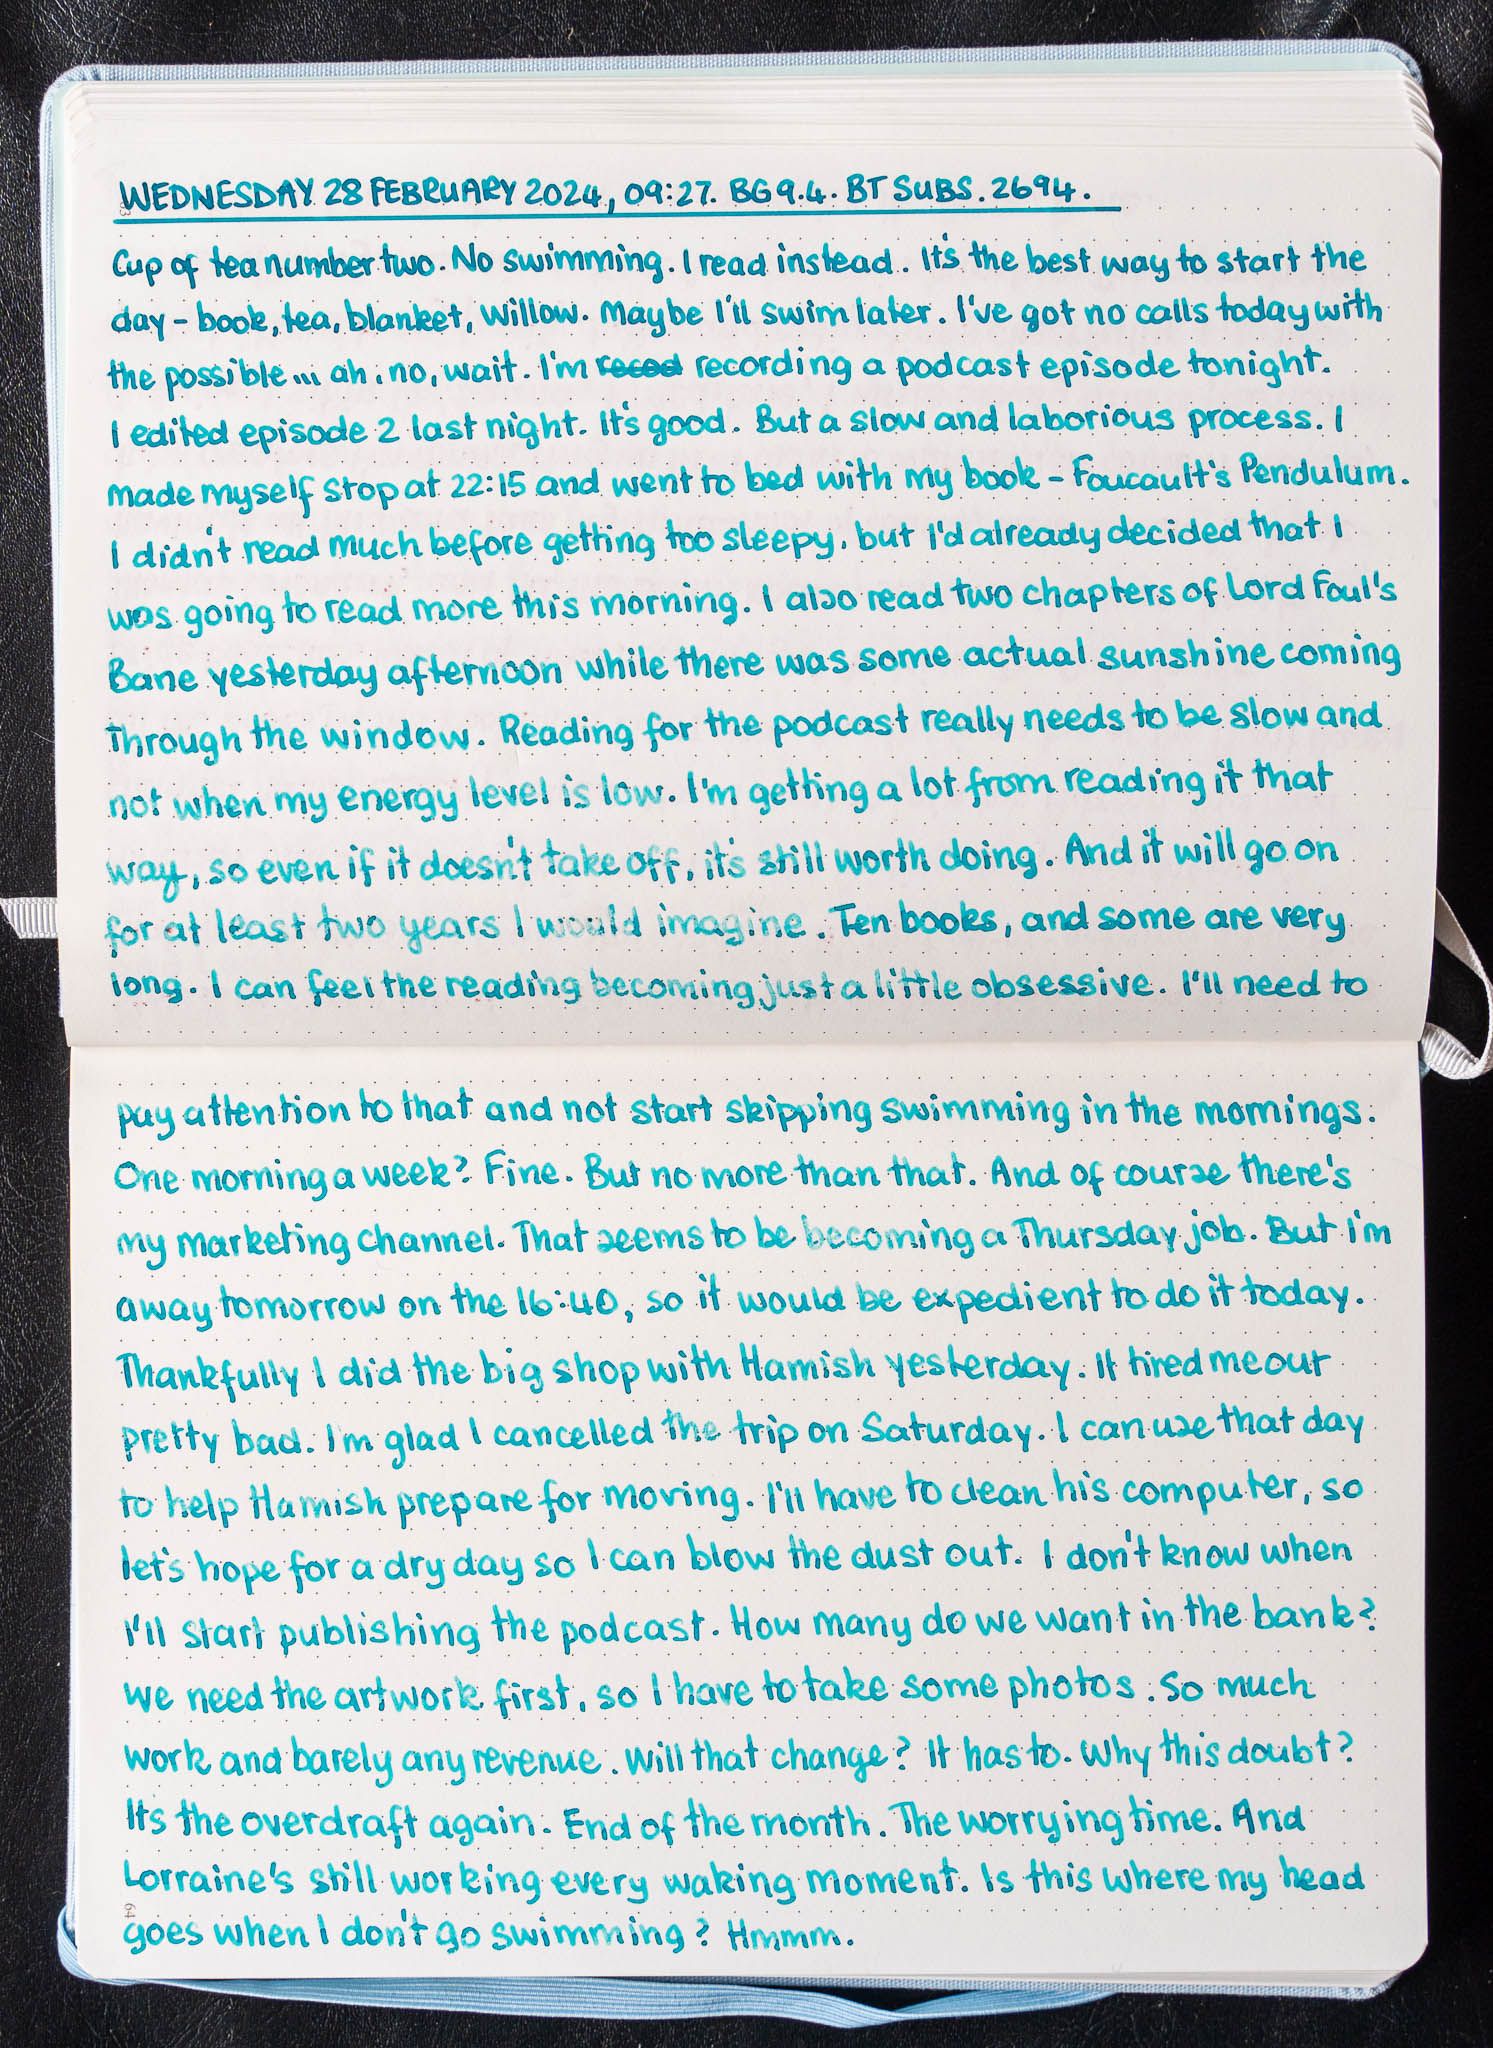 WEDNESDAY 28 FEBRUARY 2024, 09:27. BG 9.4. BT SUBS. 2694.
Cup of tea number two. No swimming. I read instead. It's the best way to start the
day - book, tea, blanket, Willow. Maybe I'll swim later. I've got no calls today with
the possible... ah, no, wait. I'm recod recording a podcast episode tonight.
I edited episode 2 last night. It's good. But a slow and laborious process. I
made myself stop at 22:15 and went to bed with my book - Foucault's Pendulum.
I didn't read much before getting too sleepy, but I'd already decided that I
was going to read more this morning. I also read two chapters of Lord Foul's
Bane yesterday afternoon while there was some actual sunshine coming
through the window. Reading for the podcast really needs to be slow and
not when my energy level is low. I'm getting a lot from reading it that
way, so even if it doesn't take off, it's still worth doing. And it will go on
for at least two years I would imagine. Ten books, and some are very
long. I can feel the reading becoming just a little obsessive. I'll need to
pay attention to that and not start skipping swimming in the mornings.
One morning a week? Fine. But no more than that. And of course there's
my marketing channel. That seems to be becoming a Thursday job. But I'm
away tomorrow on the 16:40, so it would be expedient to do it today.
Thankfully I did the big shop with Hamish yesterday. It tired me out
pretty bad. I'm glad I cancelled the trip on Saturday. I can use that day
to help Hamish prepare for moving. I'll have to clean his computer, so
let's hope for a dry day so I can blow the dust out. I don't know when
I'll start publishing the podcast. How many do we want in the bank?
We need the artwork first, so I have to take some photos. So much
work and barely any revenue. Will that change? It has to. Why this doubt?
It's the overdraft again. End of the month. The worrying time. And
Lorraine's still working every waking moment. Is this where my head
goes when I don't go swimming? Hmmm.
64